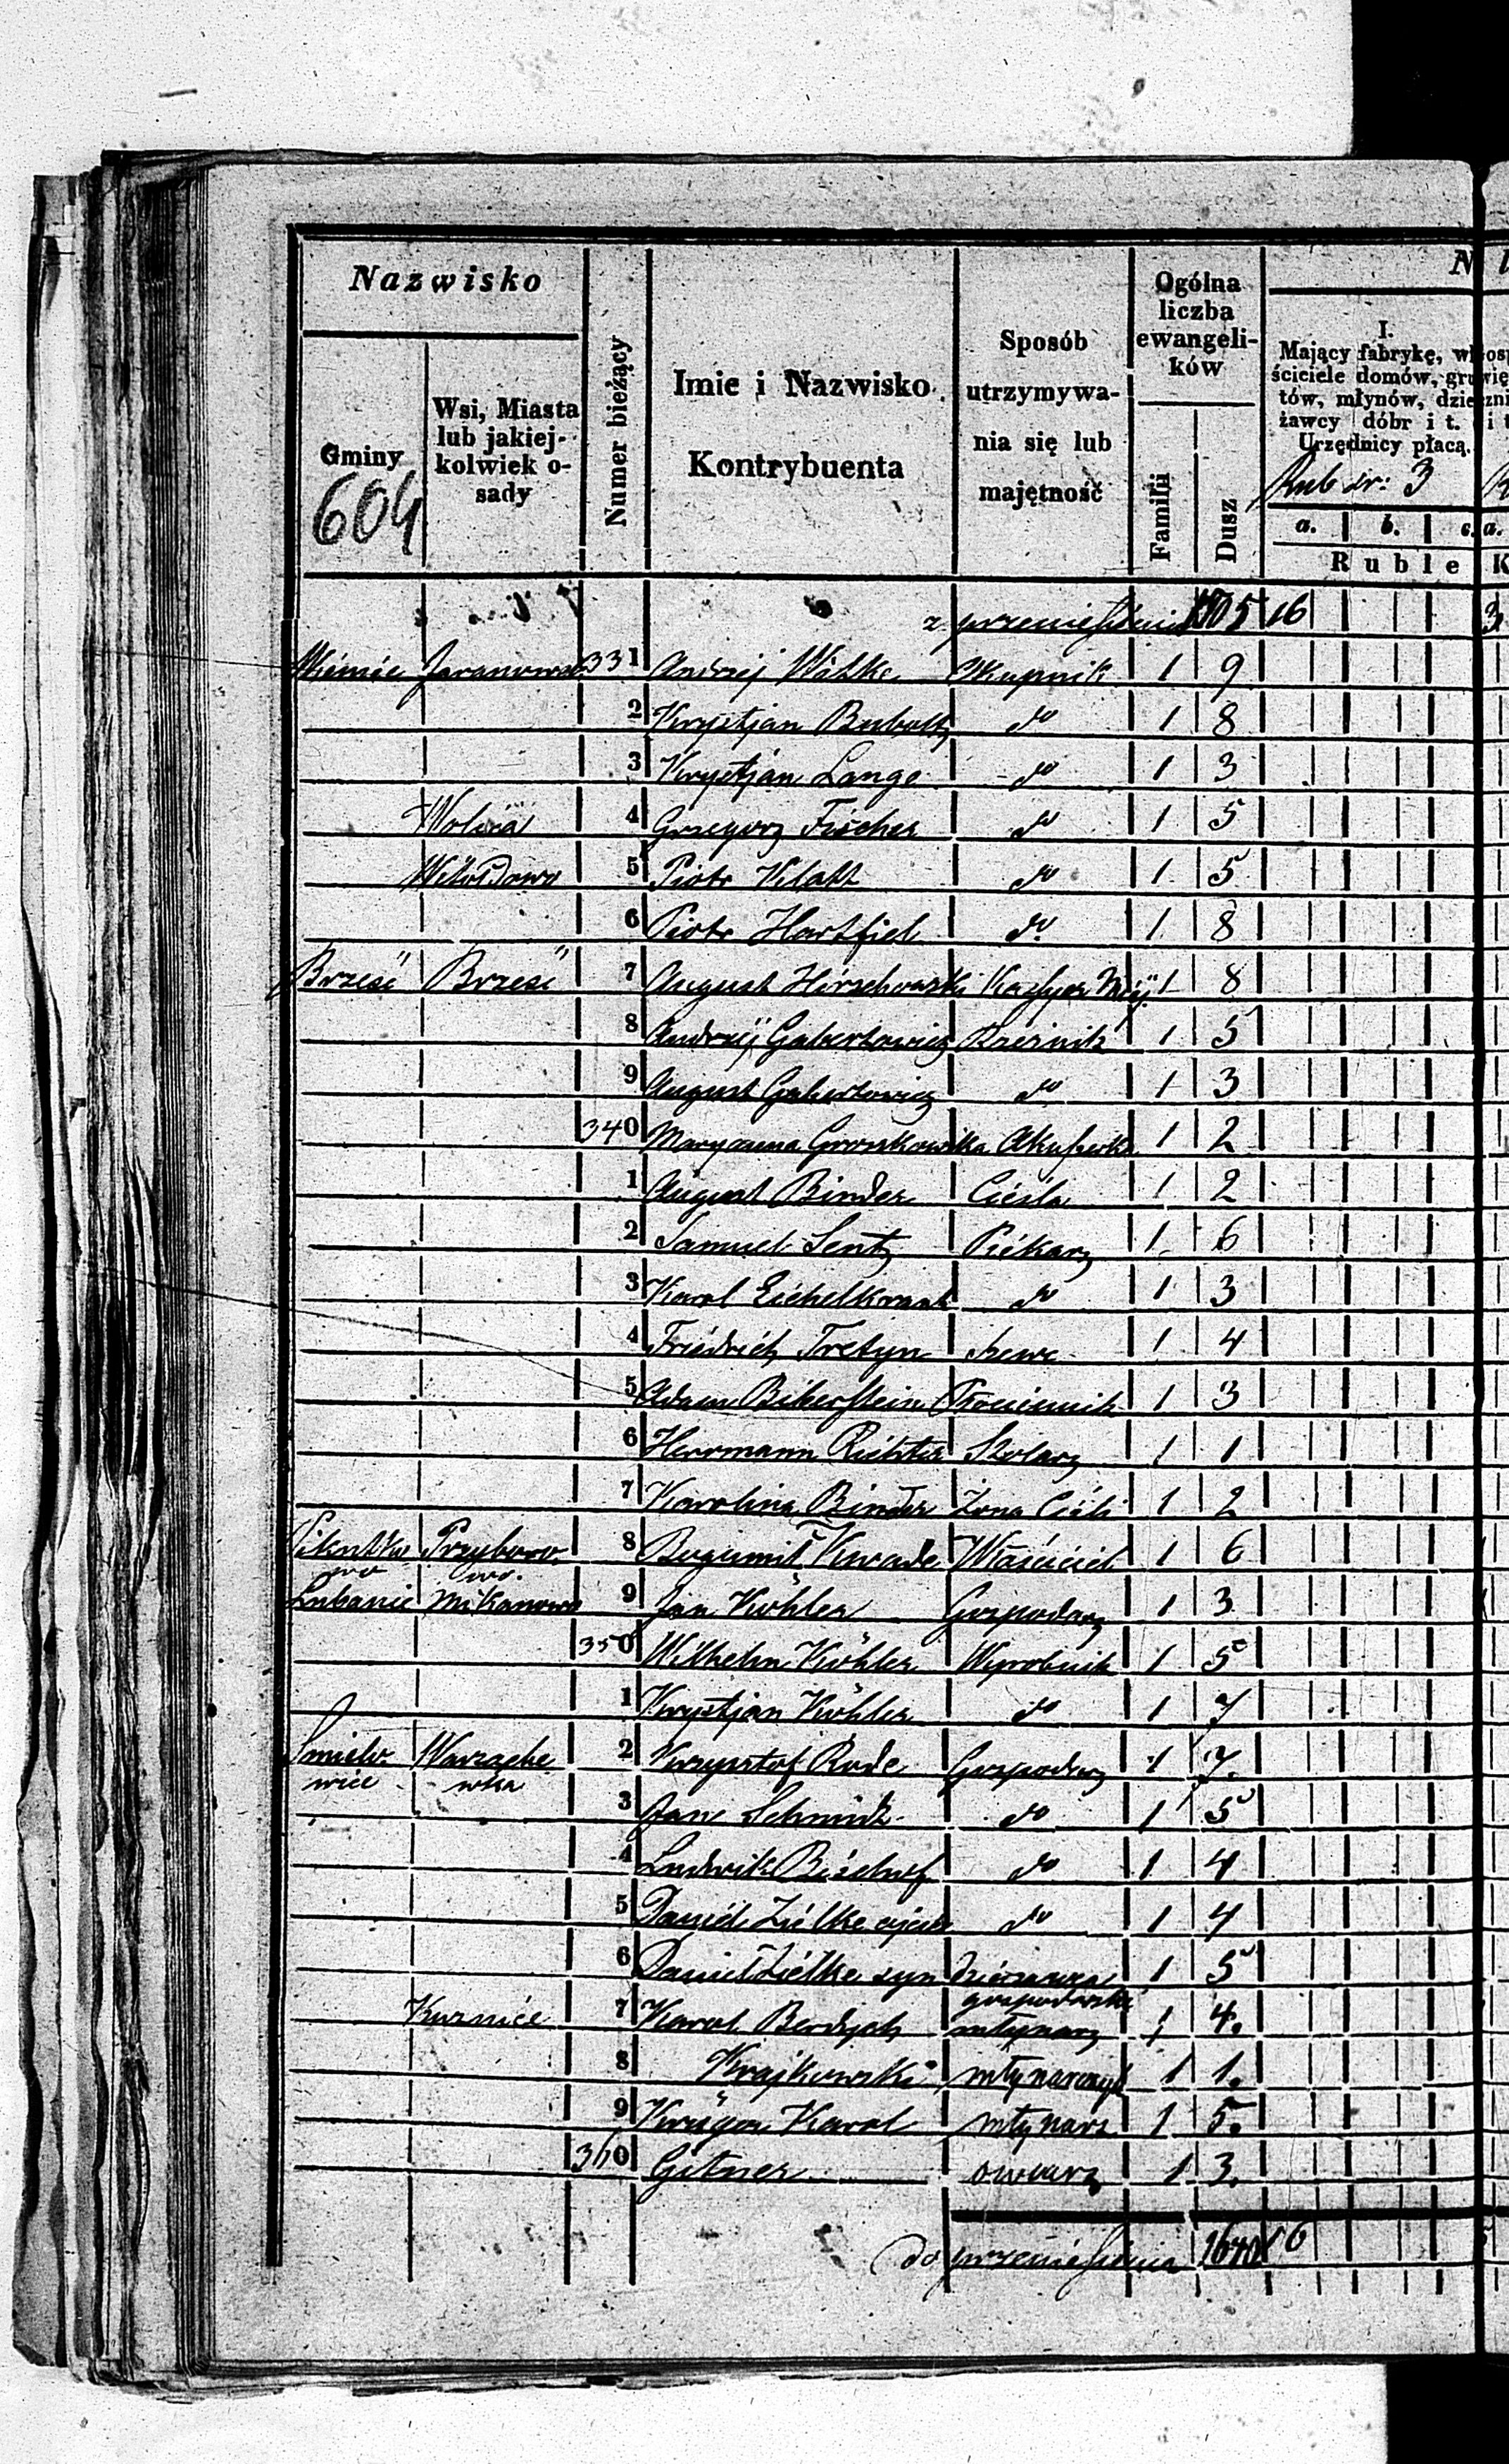 Nazwisko
Gminy
604
Wsi, Miasta
lub jakiej-
kolwiek o-
sady
Numer bieżący
Imie i Nazwisko
Kontrybuenta
Sposób
utrzymywa-
nia się lub
majętność
Ogólna
liczba
ewangeli-
ków
Familii
Dusz
I.
Mający fabrykę,
ściciele domów, grun
tów, młynów, dzier
żawcy dóbr i t.
Urzędnicy płacą.
Rub sr: 3
a. b. c. a.
Ruble K
z przeniesienia 1505 16 3
331 Andrzej Okupnik 1 9
2 Krystjan Buboltz do 1 8
3 Krystjan Lange do 1 3
4 Grzegorz Fischer do 1 5
Witoldowo 5 Piotr Klatt do 1 5
6 Piotr Hartfiel do 1 8
Brześć Brześć 7 August Hirschowski Kassyer Miej. 1 8
8 Andrzej Gabertowicz Rzeźnik 1 5
9 August Gabertowicz do 1 3
340 Maryanna Groszkowska Akuszerka 1 2
1 August Binder Cieśla 1 2
2 Samuel Sentz Piekarz 1 6
3 Karol Eichelkraut do 1 3
4 Friedrich Tretyn Szewc 1 4
5 Adam Bikerstein 1 3
6 Herrmann Richter Stolarz 1 1
7 Karolina Binder Żona Cieśli 1 2
Pikutko
wo Przyboro
wo. 8 Bogumił Kwade Właściciel 1 6
Lubanie Mikanowo 9 Jan Köhler Gospodarz 1 3
350 Wilhelm Köhler Wyrobnik 1 5
1 Krystjan Köhler do 1 7
Śmiło
wice Warząche
wka 2 Krzysztof Rode Gospodarz 1 7.
3 Jan Schmidt do 1 5
4 Ludwik Bischof do 1 4
5 Daniel Zielke ojciec do 1 4
6 Daniel Zielke syn dzierzawca
gospodarski 1 5
Kuznice 7 Karol Berdych młynarz 1 4.
8 Krajkowski młynarczyk 1 1.
9 Krüger Karol młynarz 1 5.
360 Gitner owczarz 1 3.
do przeniesienia 1640 16